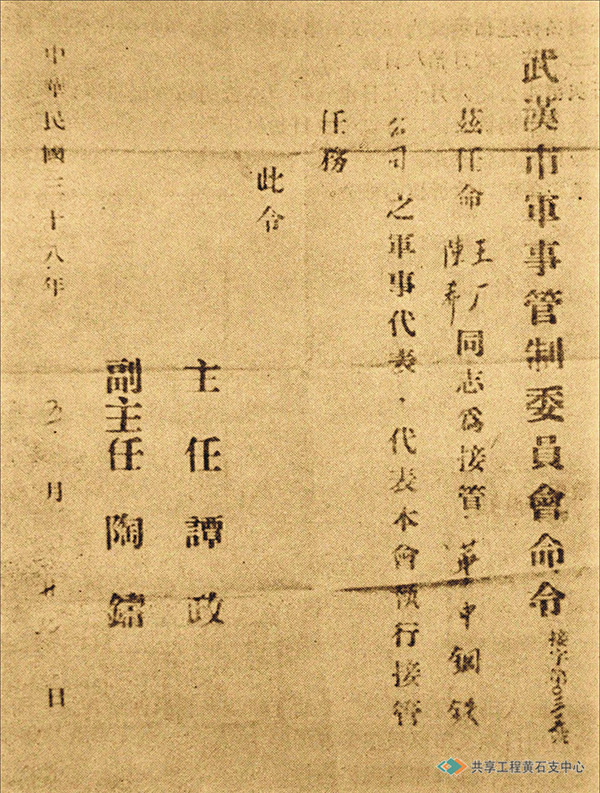 武漢市軍事管制委員會命令 接字第
茲任命 王 陳 同志為接管 華中鋼鉄
公司之軍事代表，代表本會執行接管
任務
此令
主任 譚政
副主任 陶鑄
中華民國三十八年 五月 日
共享工程黄石支中心